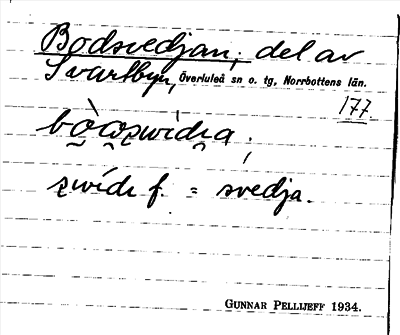 Bodsvedjan, del av
Svartbyn, Överluleå sn o. tg, Norrbottens län.
177.
= svedja.
GUNNAR PELLIJEFF 1934.